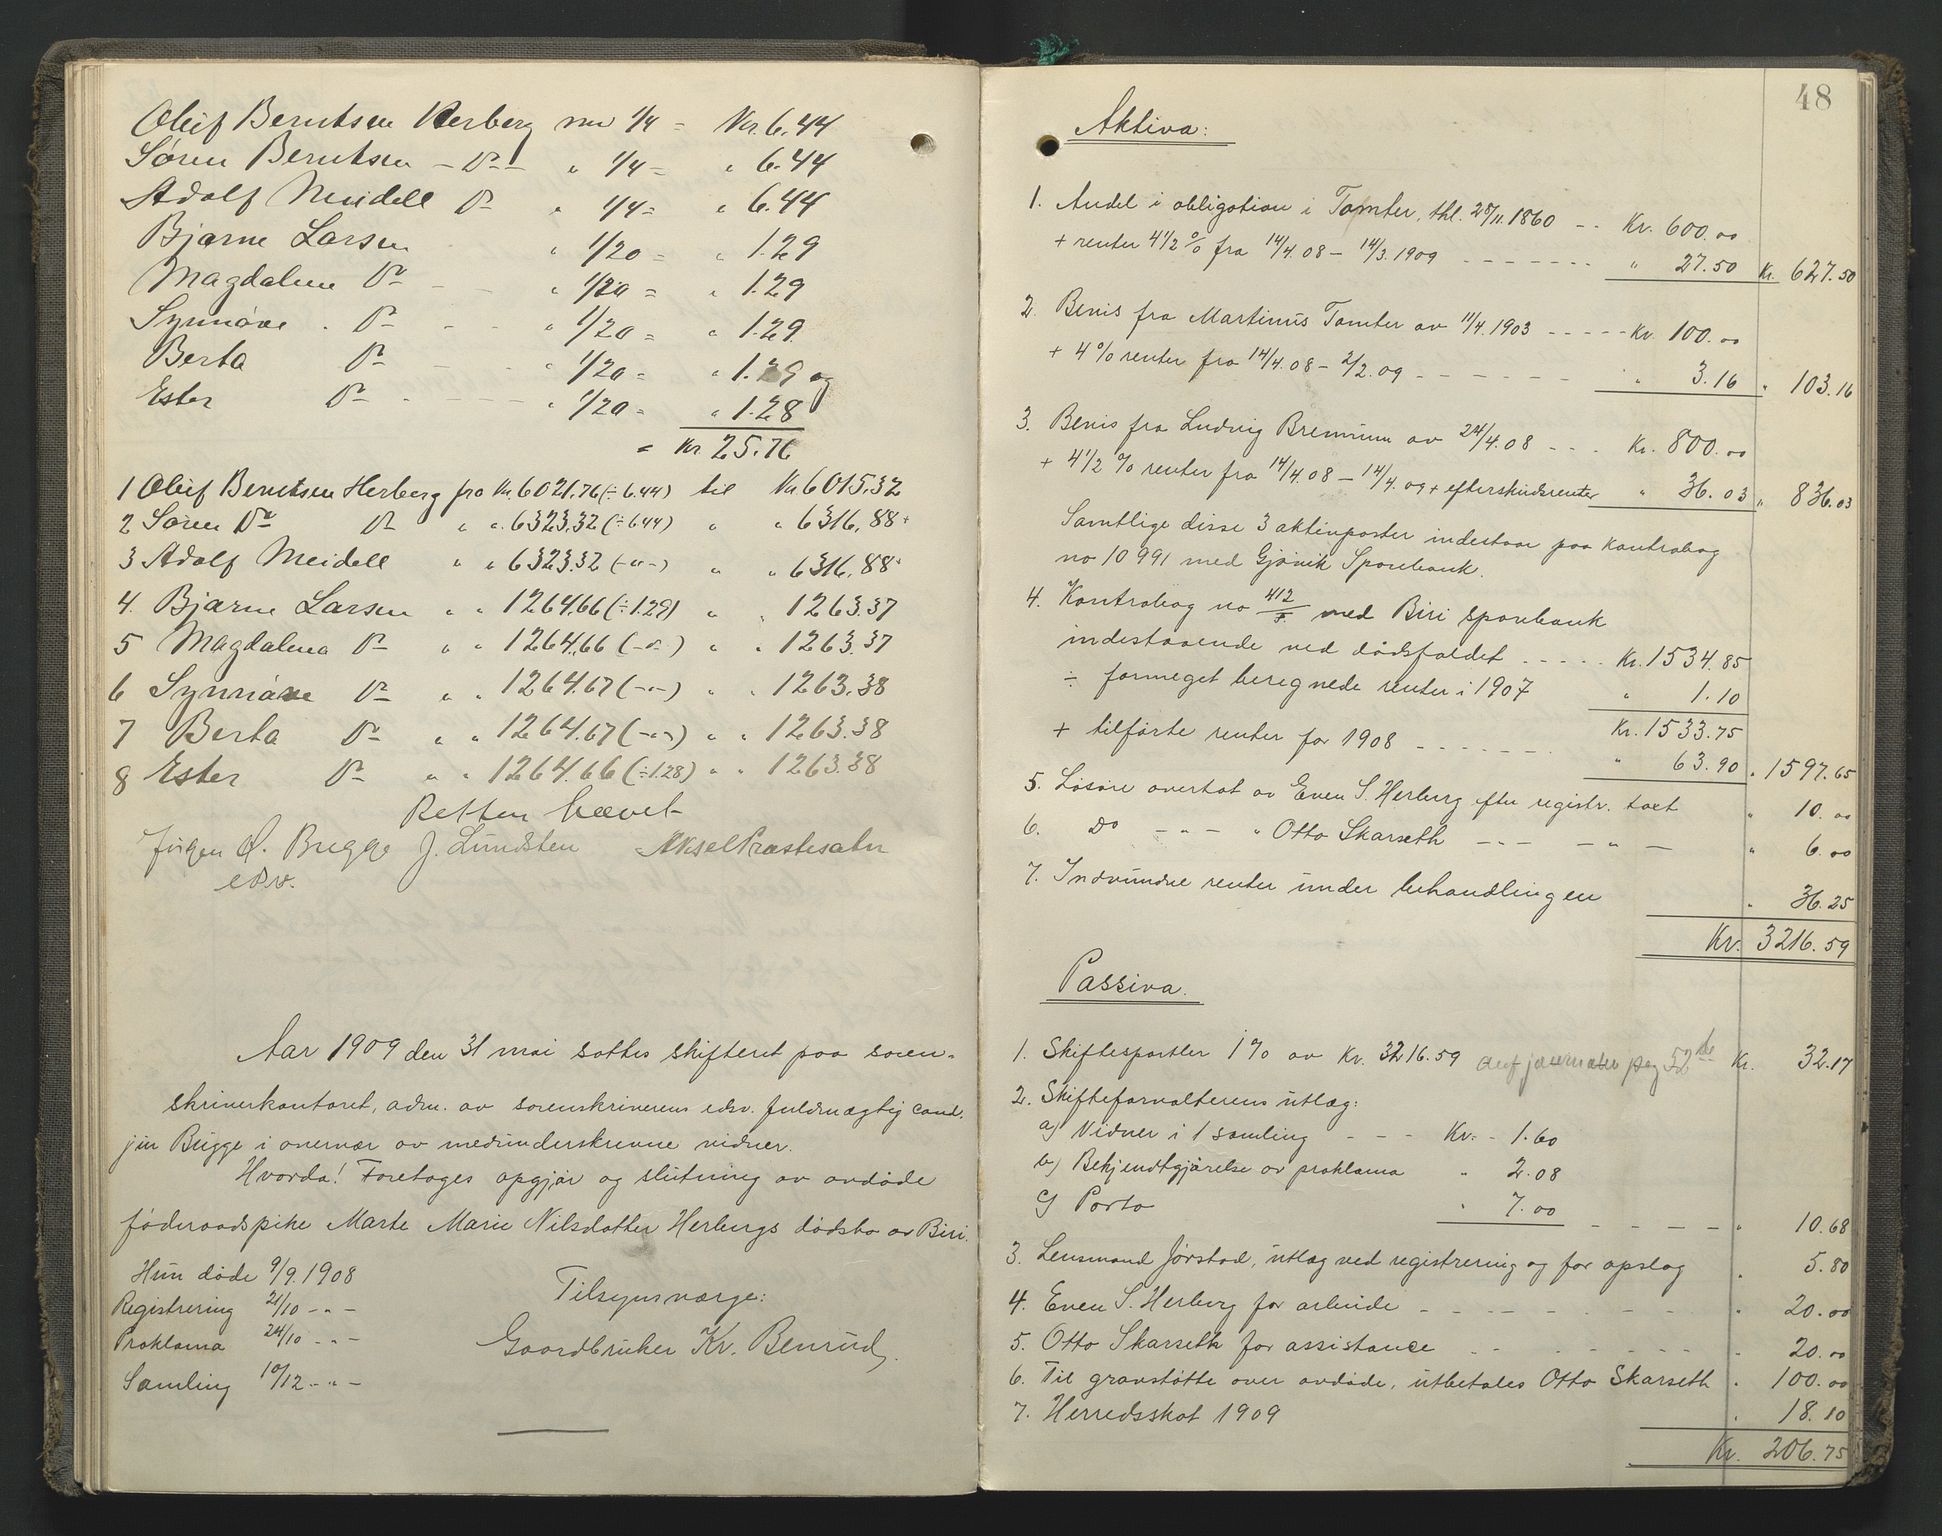 Oluf Berntsen Herberg nu 1/4 = Kr. 6.44
Søren Berntsen – Do – " 1/4 = " 6.44
Adolf Meidell Do " 1/4 = " 6.44
Bjarne Larsen " 1/20 = " 1.29
Magdalena Do – – " 1/20 = " 1.29
Synnøve . Do – – " 1/20 = " 1.29
Berta Do – – " 1/20 = " 1.29 og
Ester Do – – – " 1/20 = " 1.28
= Kr 25.76
1 Oluf Berntsen Herberg fra Kr 6021.76 (÷ 6.44) til Kr 6015.32
2 Søren Do Do " " 6323.32 (÷ 644) " " 6316.88
3 Adolf Meidell " " 6323.32 (–"–) " " 6316.88
4. Bjarne Larsen " " 1264.66 (÷ 1.29) " " 1263.37
5 Magdalena Do " " 1264.66 (–"–) " " 1263.37
6 Synnøve Do " " 1264.67 (–"–) " " 1263.38
7 Berta Do " " 1264.67 (–"–) " " 1263.38
8 Ester Do " " 1264.66 (÷ 1.28) " " 1263.38
Retten hævet
Jørgen Q. Brugge J. Lundsten Aksel Præstesæter
edsv.
Aar 1909 den 31 mai sattes skifteret paa soren-
skriverkontoret, adm. av sorenskriverens edsv. fuldmægtig cand.
jur Brügge i overvær av medunderskrevne vidner.
Hvorda! Foretoges opgjør og slutning av avdøde
føderaadspike Marte Marie Nilsdatter Herbergs dødsbo av Biri.
Hun døde 9/9. 1908
Registrering 21/10 – " –
Proklama 24/10 – " –
Samling 10/12 – " –
Tilsynsværge:
Gaardbruker Kr. Benrud.
48
Aktiva:
1. Andel i obligation i Tomter, thl. 28/11. 1860 – – Kr. 600.00
+ renter 4 1/2 % fra 14/4. 08 – 14/3. 1909 – – – – – – – " 27.50 Kr. 627.50
2. Bevis fra Martinus Tomter av 11/4. 1903 – – – – – Kr. 100.00
+ 4% renter fra 14/4. 08 – 2/2. 09 – – – – – – " 3.16 " 103.16
3. Bevis fra Ludvig Brennum av 24/4. 08 – – – Kr. 800.00
+ 4 1/2 % renter fra 14/4. 08 – 14/4. 09 + efterskudsrenter " 36.03 " 836.03
Samtlige disse 3 aktivposter indestaar paa kontrabog
no 10991 med Gjøvik Sparebank.
4. Kontrabog no 412/F med Biri sparebank
indestaaende ved dødsfaldet – – – – – Kr. 1534.85
÷ formeget beregnede renter i 1907 " 1.10
Kr. 1533.75
+ tilførte renter for 1908 – – – – – – – " 63.90 " 1597.65
5. Løsøre overtat av Even S. Herberg efter registr. taxt " 10.00
6. Do – " – " Otto Skarseth – – – – " – " 6.00
7. Indvundne renter under behandlingen " 36.25
Kr. 3216.59
Passiva.
1. Skiftesportler 1% av Kr. 3216.59 Kr. 32.17
2. Skifteforvalterens utlæg:
a) Vidner i 1 samling – – – Kr. – 1.60
b) Bekjendtgjørelse av proklama " 2.08
c) Porto " 7.00 – – – – – " 10.68
3. Lensmand Jørstad, utlæg ved registrering og for opslag " 5.80
4. Even S. Herberg for arbeide – – – – – – – – " 20.00
5. Otto Skarseth for assistance – – – – – – " 20.00
6. Til gravstøtte over avdøde, utbetales Otto Skarseth " 100.00
7. Herredsskat 1909 " 18.10
Kr. 206.75